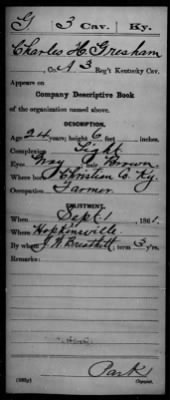 G 3 Cav. Ky.
Charles H. Gresham
, Co. A 3 Reg't Kentucky Cav.
Appears on
Company Descriptive Book
of the organization named above.
DESCRIPTION.
Age 24 years; height 6 feet inches.
Complexion Light
Eyes Gray ; hair Brown
Where born Christian Co. Ky.
Occupation Farmer
ENLISTMENT.
When Sept. 1 , 1861.
Where Hopkinsville
By whom J. W. Breathitt ; term 3 y'rs.
Remarks:
Park
Copyist.